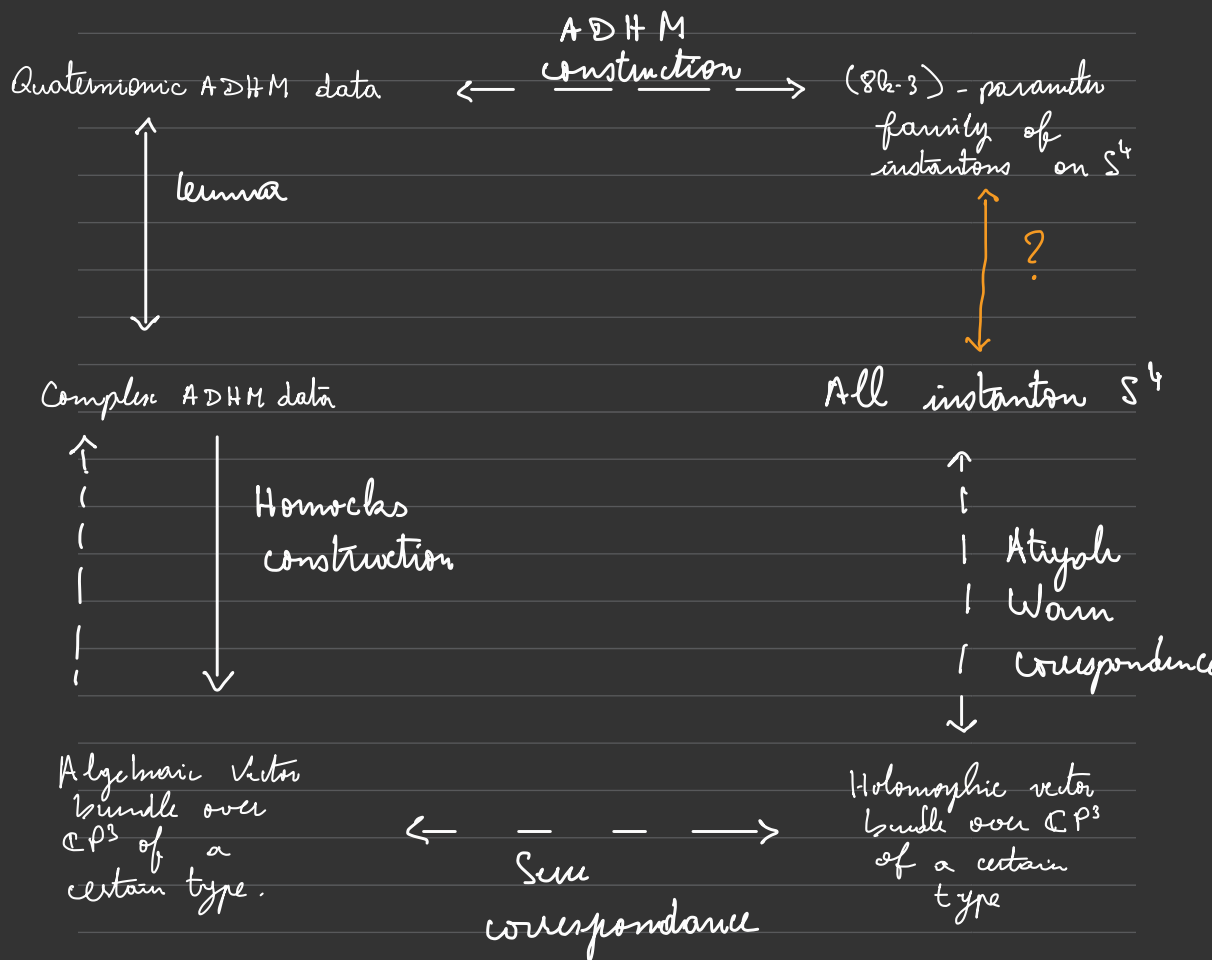 ADHM
construction
Quaternionic ADHM data
(8k-3) - parameter
family of
instantons on S⁴
lemma
?
Complex ADHM data
All instanton S⁴
Horrocks
construction
Atiyah
Warn
correspondence
Algebraic vector
bundle over
CP³ of a
certain type.
Holomorphic vector
bundle over CP³
of a certain
type
Serre
correspondance